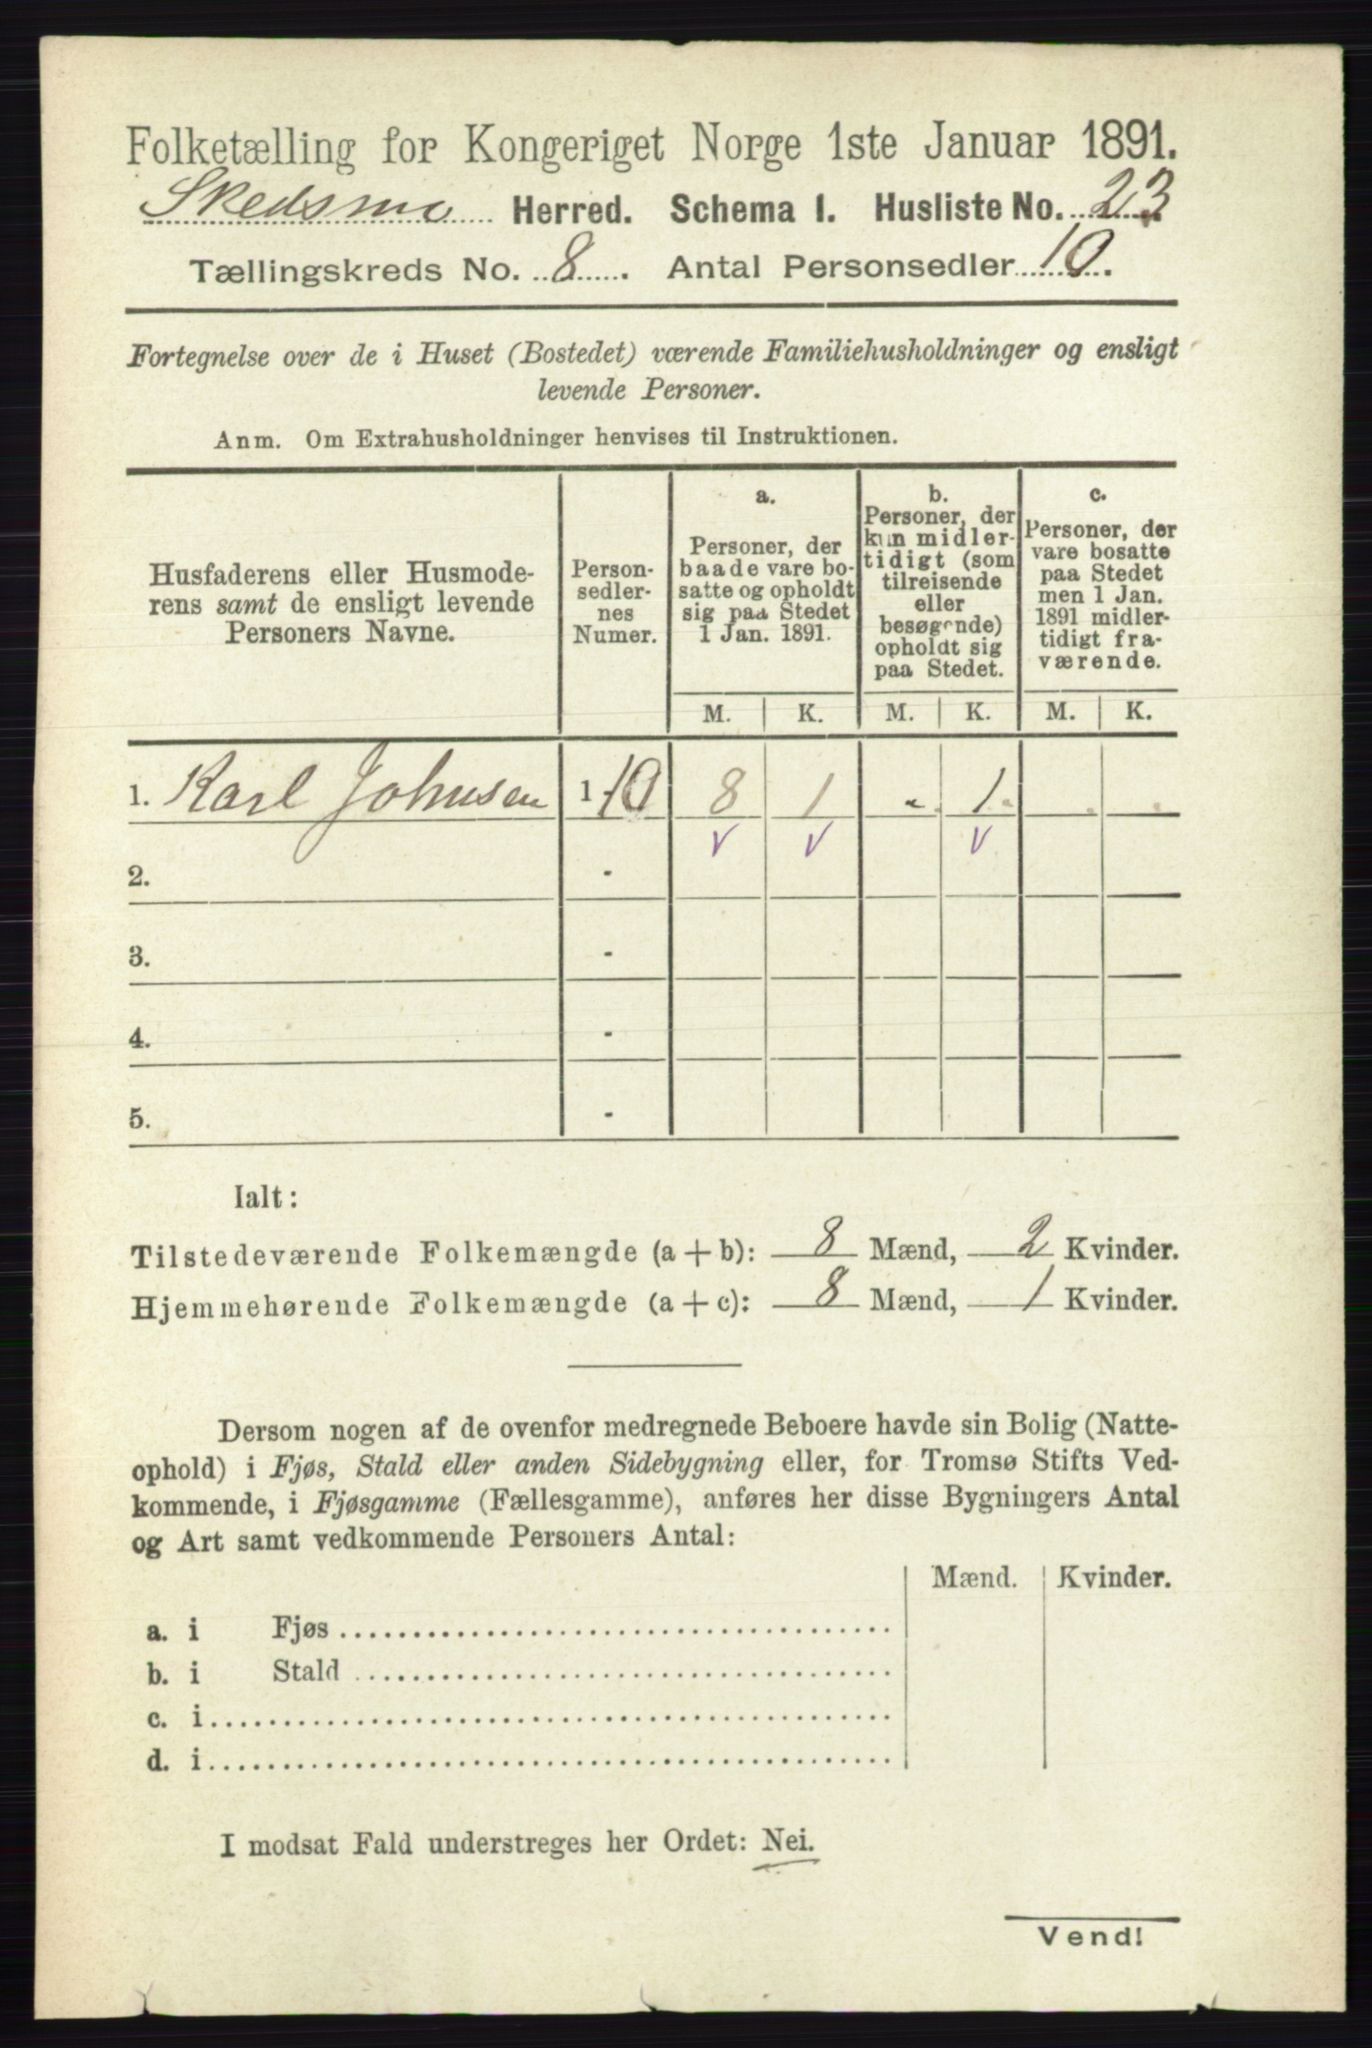 Folketælling for Kongeriget Norge 1ste Januar 1891.
Skedsmo Herred. Schema 1. Husliste No. 23
Tællingskreds No. 8. Antal Personsedler 10.
Fortegnelse over de i Huset (Bostedet) værende Familiehusholdninger og ensligt
levende Personer.
Anm. Om Extrahusholdninger henvises til Instruktionen.
Husfaderens eller Husmode-
rens samt de ensligt levende
Personers Navne.
Person-
sedler-
nes
Numer.
a.
Personer, der
baade vare bo-
satte og opholdt
sig paa Stedet
1 Jan. 1891.
b.
Personer, der
kun midler-
tidigt (som
tilreisende
eller
besøgende)
opholdt sig
paa Stedet.
c.
Personer, der
vare bosatte
paa Stedet
men 1 Jan.
1891 midler-
tidigt fra-
værende.
M. K. M. K. M. K.
1. Karl Johnsen 1-10 8 1 - 1 . .
2. -
3. -
4. -
5. -
Ialt:
Tilstedeværende Folkemængde (a + b): 8 Mænd, 2 Kvinder.
Hjemmehørende Folkemængde (a + c): 8 Mænd, 1 Kvinder.
Dersom nogen af de ovenfor medregnede Beboere havde sin Bolig (Natte-
ophold) i Fjøs, Stald eller anden Sidebygning eller, for Tromsø Stifts Ved-
kommende, i Fjøsgamme (Fællesgamme), anføres her disse Bygningers Antal
og Art samt vedkommende Personers Antal:
Mænd. Kvinder.
a. i Fjøs
b. i Stald
c. i
d. i
I modsat Fald understreges her Ordet: Nei.
Vend!